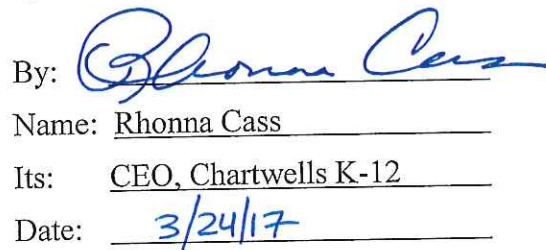 By: Rhonna Cass
Name: Rhonna Cass
Its: CEO, Chartwells K-12
Date: 3/24/17